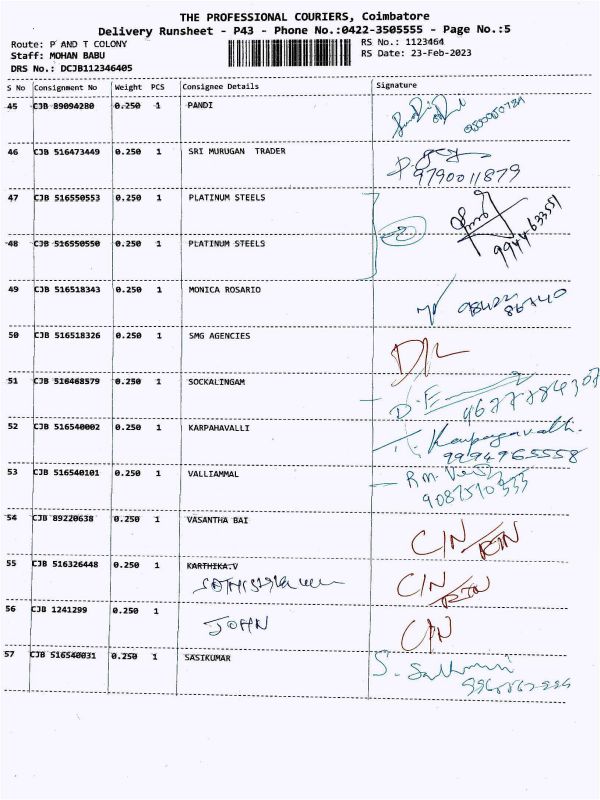 THE PROFESSIONAL COURIERS, Coimbatore
Delivery Runsheet - P43 - Phone No.:0422-3505555 - Page No.:5
Route: P AND T COLONY RS No.: 1123464
Staff: MOHAN BABU RS Date: 23-Feb-2023
DRS No.: DCJB112346405
S No Consignment No Weight PCS Consignee Details Signature
45 CJB 89094280 0.250 1 PANDI
46 CJB 516473449 0.250 1 SRI MURUGAN TRADER
9790011879
47 CJB 516550553 0.250 1 PLATINUM STEELS
48 CJB 516550550 0.250 1 PLATINUM STEELS
9944633551
49 CJB 516518343 0.250 1 MONICA ROSARIO
50 CJB 516518326 0.250 1 SMG AGENCIES
D/L
51 CJB 516468579 0.250 1 SOCKALINGAM
52 CJB 516540002 0.250 1 KARPAHAVALLI
9994965558
53 CJB 516540101 0.250 1 VALLIAMMAL
9087510555
54 CJB 89220638 0.250 1 VASANTHA BAI
C/N RTN
55 CJB 516326448 0.250 1 KARTHIKA.V
C/N RTN
56 CJB 1241299 0.250 1
JOHN C/N
57 CJB 516540031 0.250 1 SASIKUMAR